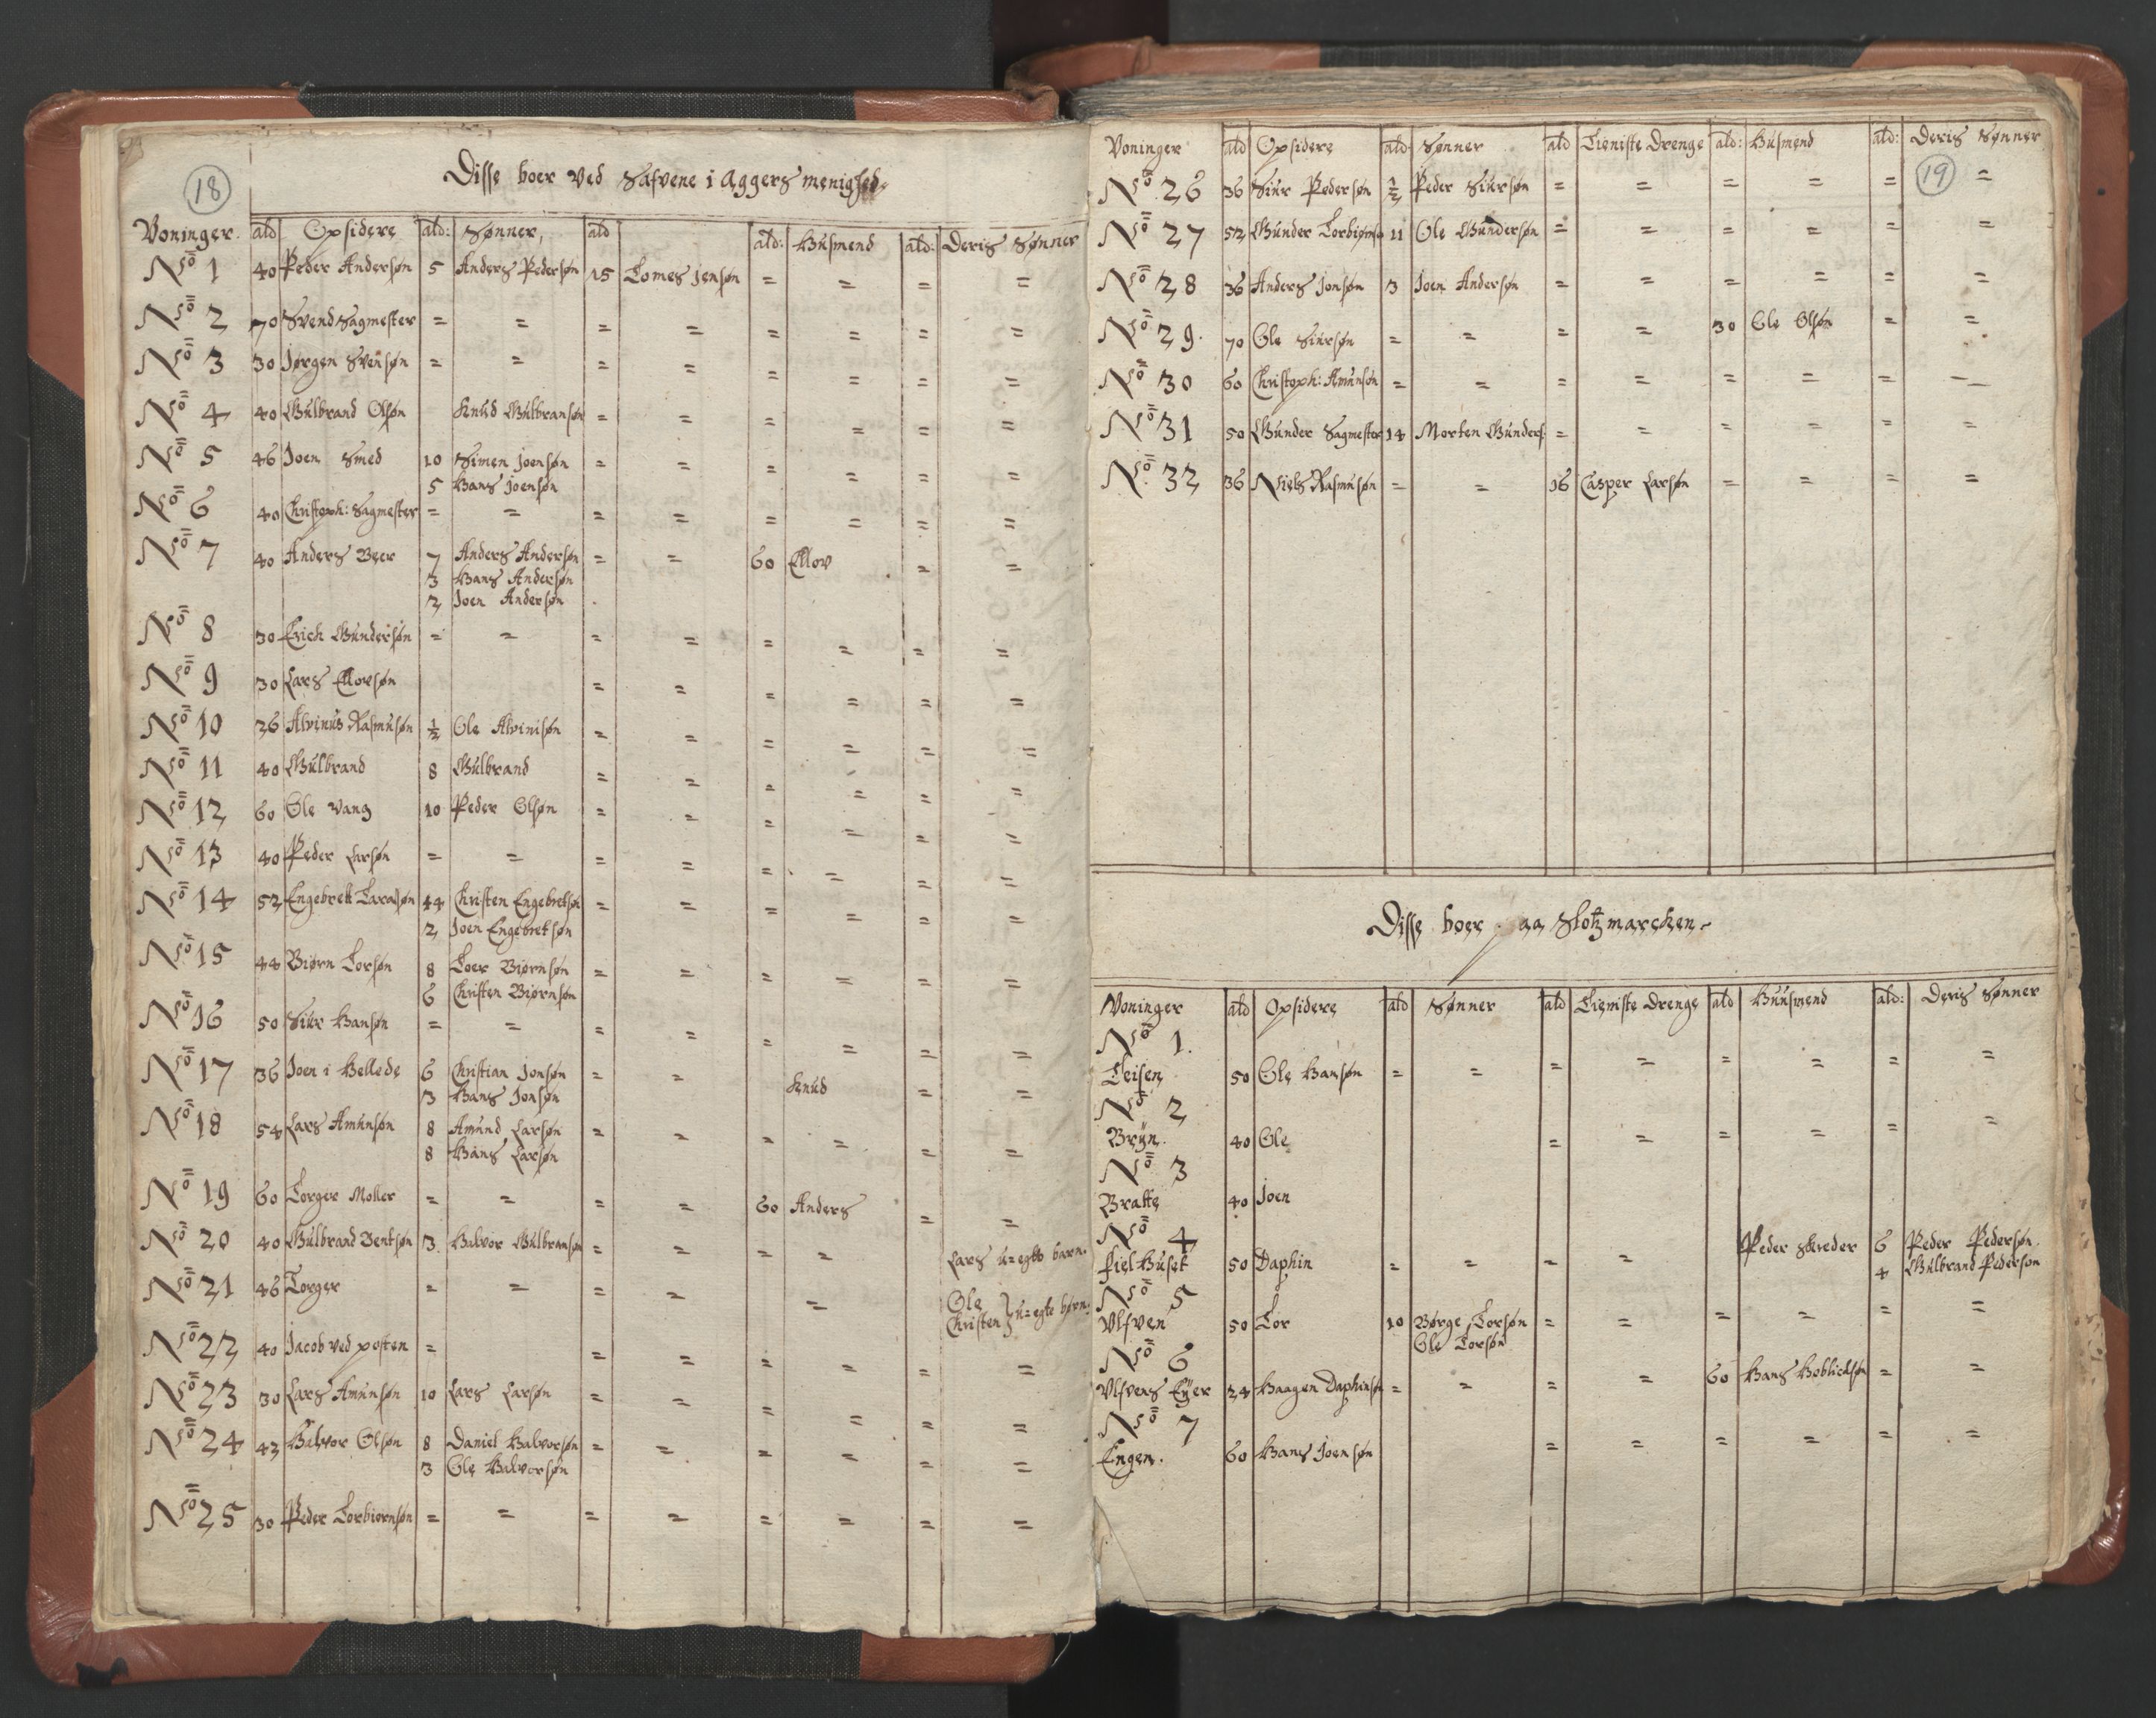 18
Disse boer ved Safvene i Aggers menighed
Voninger. ald Opsidere ald: Sønner, ald ald: Husmend ald: Deris Sønner
No 1 40 Peder Andersøn 5 Anders Pedersøn 15 Tomes Jensøn = = = =
No 2 70 Svend Sagmester = = = = = = = =
No 3 30 Jørgen Svensøn = = = = = = = =
No 4 40 Gulbrand Olsøn Knud Gulbransøn = = = = = =
No 5 46 Joen Smed 10 Simen Joensøn = = = = = =
5 Hans Joensøn
No 6 40 Christoph: Sagmester = = = = = = = =
No 7 40 Anders Beer 7 Anders Andersøn = = 60 Ellov = =
3 Hans Andersøn
2 Joen Andersøn
No 8 30 Erich Gundersøn = = = = = = = =
No 9 30 Lars Ellovsøn = = = = = =
No 10 36 Alvinus Rasmusøn ½ Ole Alvinisøn = = = = = =
No 11 40 Gulbrand 8 Gulbrand = = = = = =
No 12 60 Ole Vang 10 Peder Olsøn = = = = = =
No 13 40 Peder Larsøn = = = = = = = =
No 14 52 Engebrett 44 Christen Engebretsøn = = = = = =
2 Joen Engebretsøn
No 15 44 Biørn Torsøn 8 Toer Biørnsøn = = = = = =
6 Christen Biørnsøn
No 16 50 Siur Hansøn = = = = = = = =
No 17 36 Joen i Hellede 6 Christian Jonsøn = = Knud = =
3 Hans Jonsøn
No 18 54 Lars Amunsøn 8 Amund Larsøn = = = = = =
8 Hans Larsøn
No 19 60 Torger Moller = = = = 60 Anders = =
No 20 40 Gulbrand Bentsøn 3 Halvor Gulbransøn = = = = Lars u=egte barn.
No 21 46 Torger = = = = = Ole
Christen } u=egte børn:
No 22 40 Jacob ved posten = = = = = = =
No 23 30 Lars Amunsøn 10 Lars Larsøn = = = = = =
No 24 43 Halvor Olsøn 8 Daniel Halvorsøn = = = = = =
3 Ole Halvorsøn
No 25 30 Peder Torbiornsøn = = = = = = = =
Voninger ald Opsidere ald Sønner ald Tieniste Drenge ald: Husmend ald: Deris Sønner
19
No 26 36 Siur Pedersøn ½ Peder Siursøn = = = = = =
No 27 52 Gunder Torbiønsø 11 Ole Gundersøn = = = = = =
No 28 36 Anders Jonsøn 3 Joen Andersøn = = = = = =
No 29. 70 Ole Siursøn = = = = 30 Ole Olsøn = =
No 30 60 Christoph: Amunsøn = = = = = = = =
No 31 50 Gunder Sagmester 14 Morten Gunders: = = = = = =
No 32 36 Niels Rasmusøn = = 16 Casper Larsøn = = = =
Disse boer paa Slotzmarchen
Voninger ald Opsidere ald Sønner ald Tieniste Drenge ald Huusmend ald: Deris Sønner
No 1.
Teisen 50 Ole Hansøn = = = = = = = =
No 2
Bryn. 40 Ole = = = = = =
No 3
Bratte 40 Joen
No 4
fielhuset 50 Daphin = = = = Peder Skreder 6 Peder Pedersøn.
4 Gulbrand Pederson
No 5
Ulfven 50 Tor 10 Børge Torsøn = = = = = =
Ole Torsøn
No 6
Ulfvens Eyer 24 Haagen Daphinsøn = = = = 60 Hans = =
No 7
Engen. 60 Hans Joensøn = = = = = =